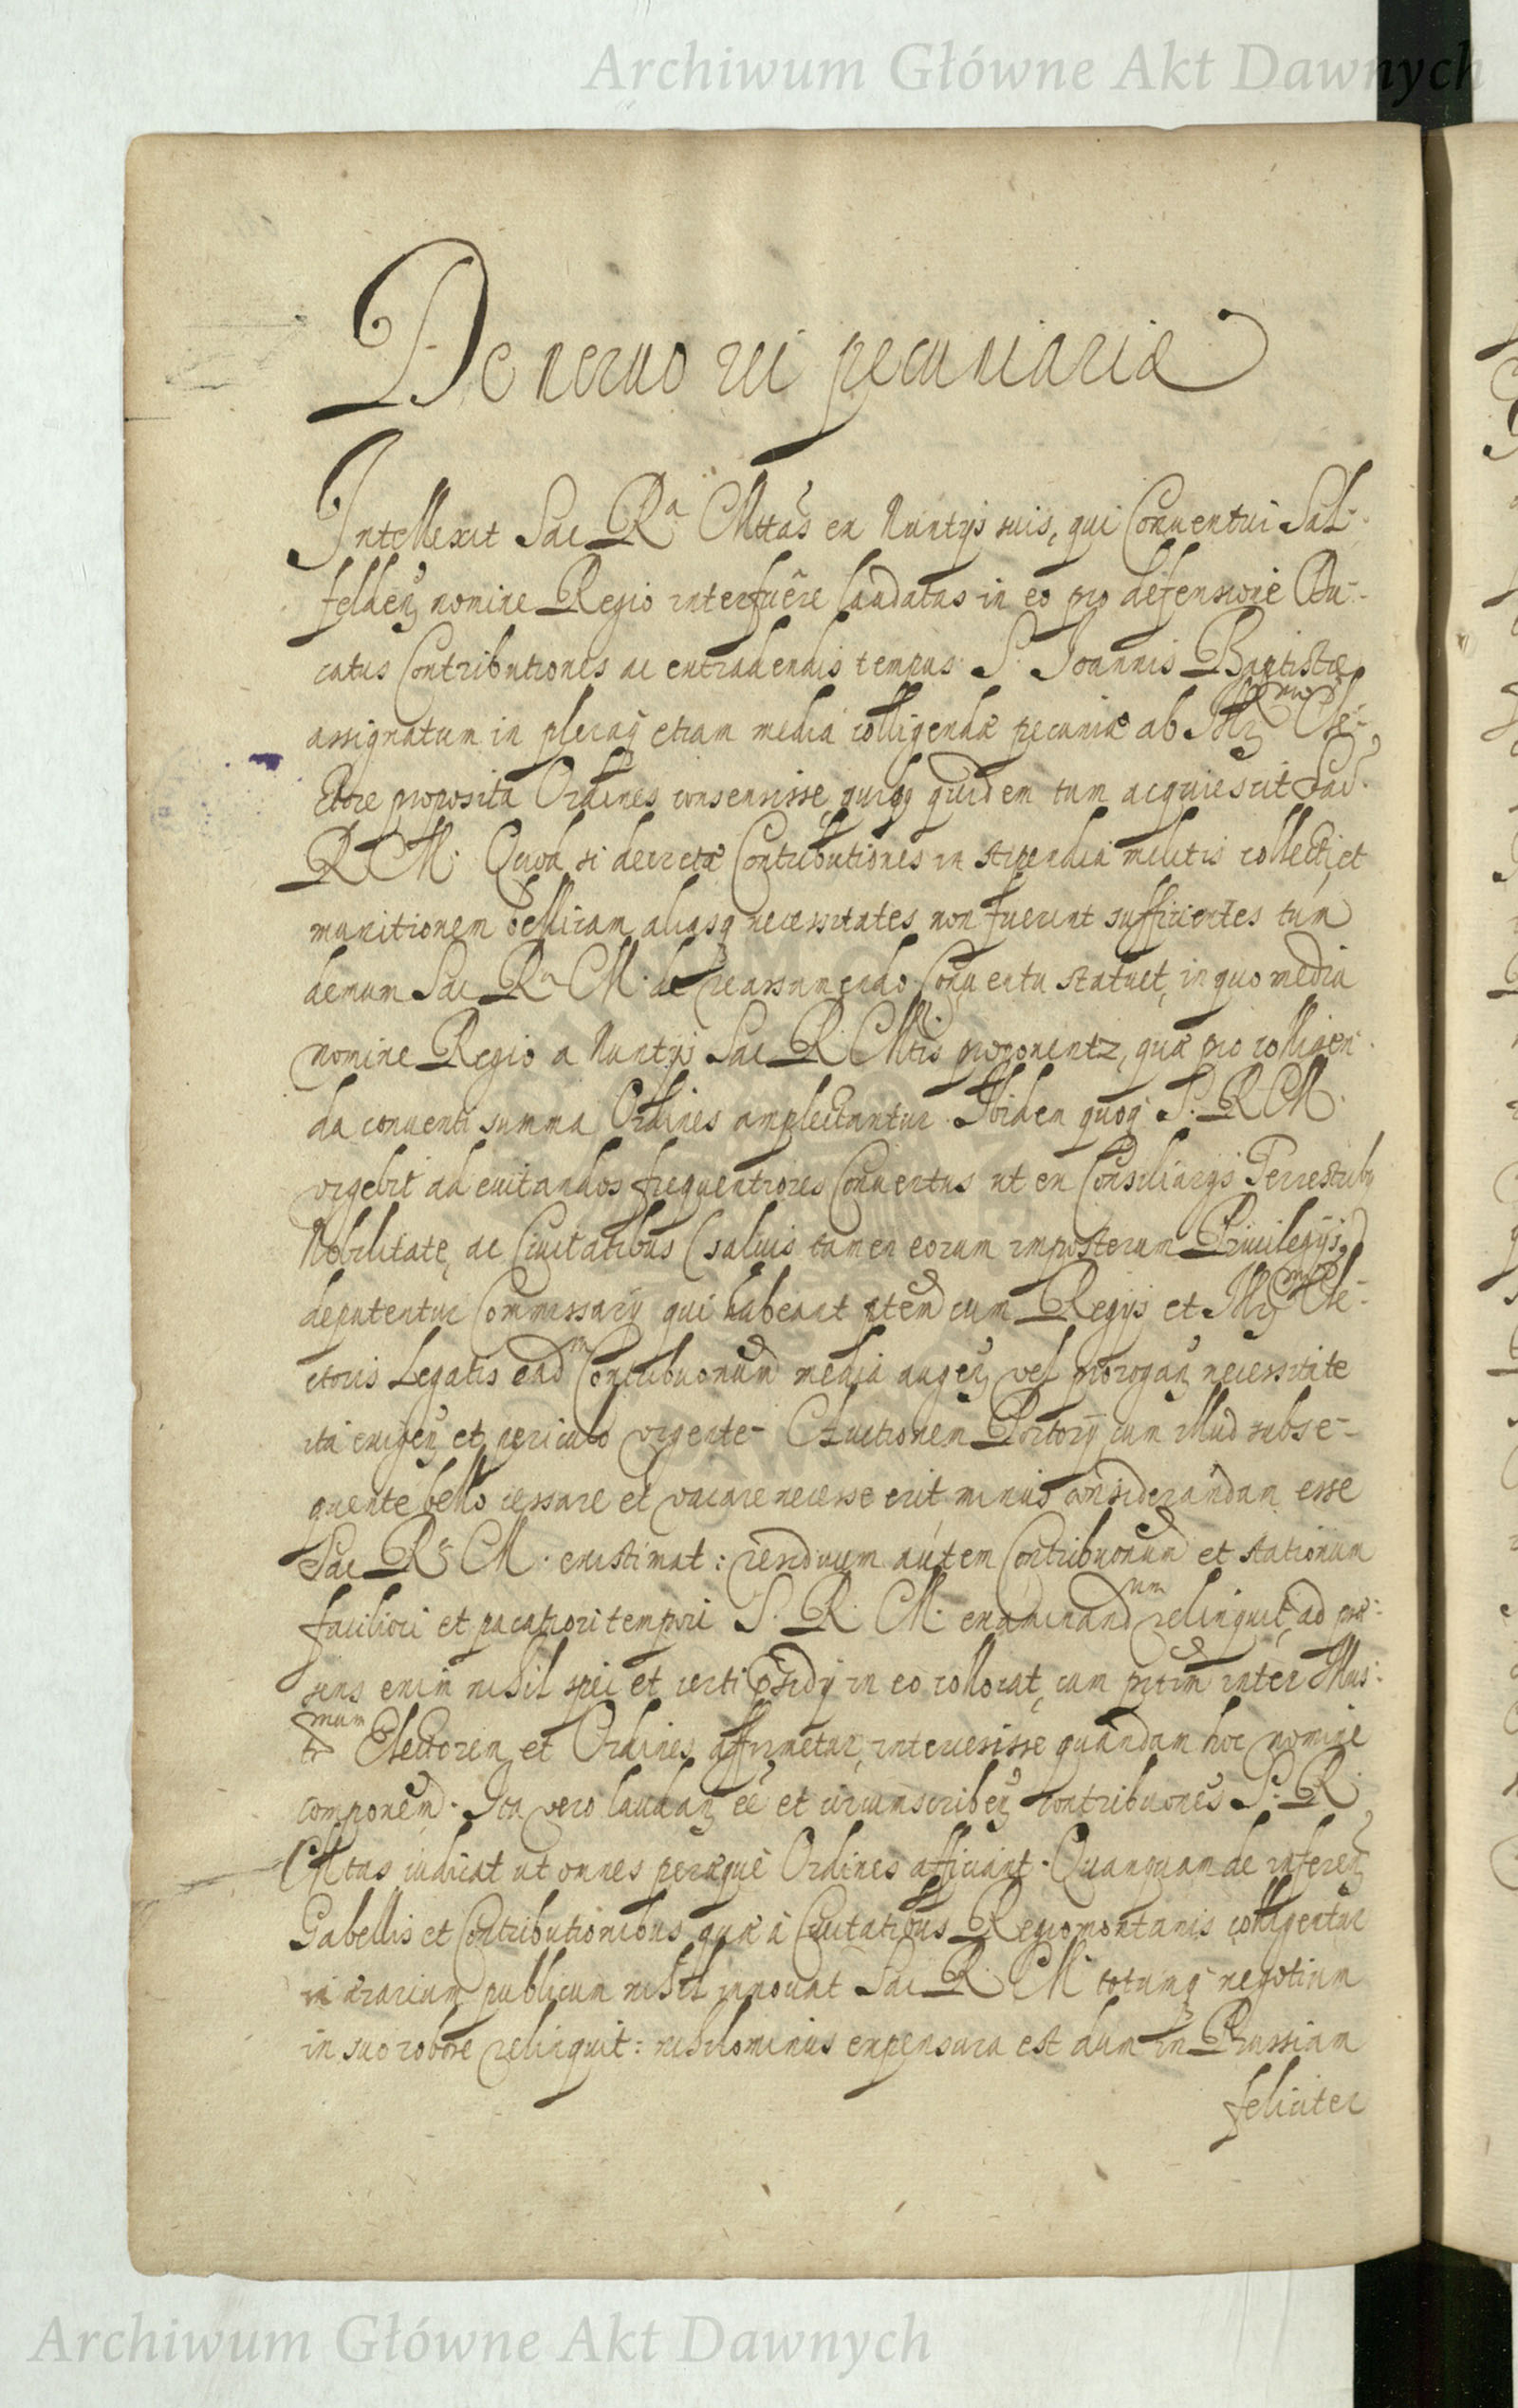 Archiwum Główne Akt Dawnych
De neruo rei pecuniariæ
Intellexit Sac Rᵃ Mttas ex Nuntijs suis, qui Conuentui Sal-
felden nomine Regio interfuere laudatas in eo pro defensione Du-
catus Contributiones ac extradendis tempus S. Joannis Baptistæ
assignatum in pleraq etiam media colligendæ pecuniæ ab Illrmo Ele-
ctore proposita Ordines consensisse, quibq quidem tum acquiescit Sac.
R M. Quod si decretæ Contributiones in stipendia militis collecti, et
munitionem bellicam aliasq necessitates non fuerint sufficientes tum
demum Sac Rᵃ M. de reassumendo Conuentu statuet, in quo media
nomine Regio a Nuntijs Sac R. Mttis proponentr, quæ pro colligen-
da conuenti summa Ordines amplectantur. Ibidem quoq S. R M.
vrgebit ad euitandos frequentiores Conuentus ut ex Consiliarijs Terrestrib9
Nobilitate, ac Ciuitatibus (saluis tamen eorum imposterum Priuilegijs)
deputentur Commissarij qui habeant ptem cum Regijs et Illrmi Ele-
ctoris Legatis ead Contribuonum media augen vel prorogan necessitate
ita exigen et periculo vrgente. Auctionem Portorij cum illud subse-
quente bello cessare et vacare necesse erit, minus considerandam esse
Sac Rᵃ M. existimat: residuum autem Contribuonum et stationum
faciliori et pacatiori tempori S. R. M. examinandum relinquit, ad præ-
sens enim nihil spei et certi psidij in eo collocat, cum ptim inter Illus-
trmum Electorem et Ordines affirmetur, interuenisse quandam hoc nomine
componem. Ita vero laudan ee et circumscriben contribuones S. R.
Mttas iudicat ut omnes peræque Ordines afficiant. Quanquam de inferen
Gabellis et Contributionibus quæ à Ciuitatibus Regiomontanis colligentur
in ærarium publicum nihil innouat Sac R. M totumq negotium
in suo robore relinquit: nihilominus expensura est dum in Prussiam
feliciter
Archiwum Główne Akt Dawnych